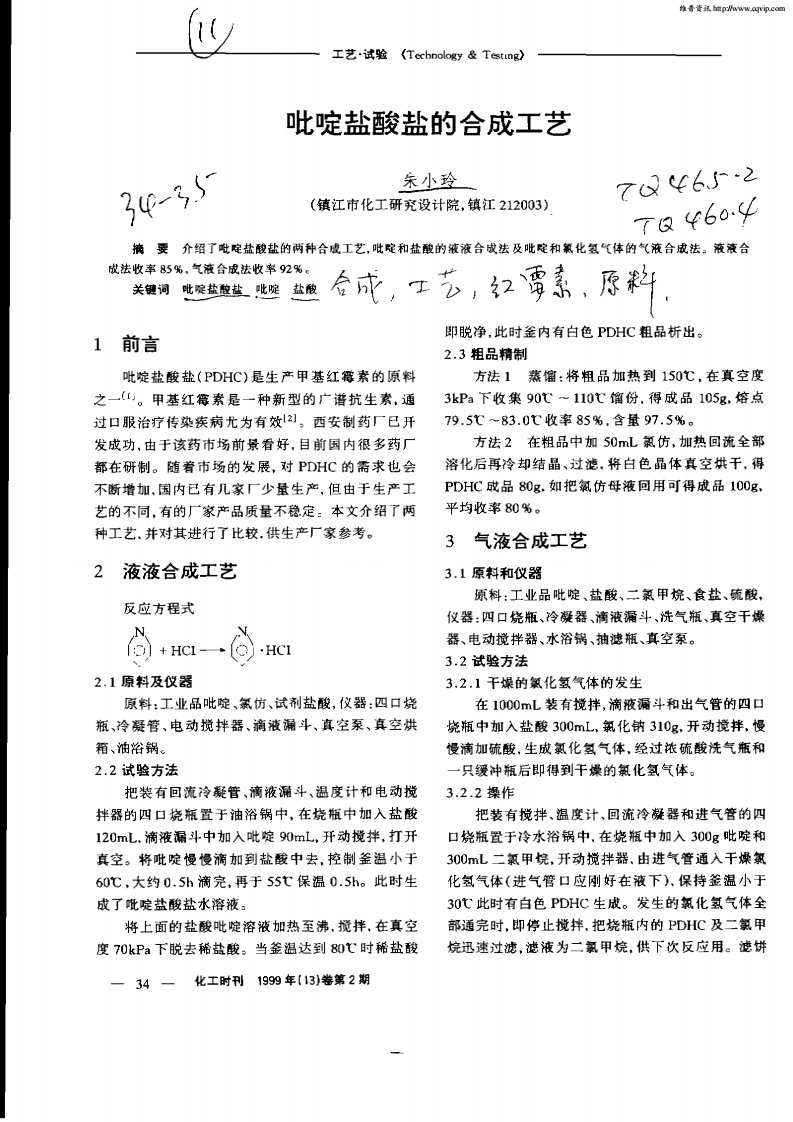 维普资讯 http://www.cqvip.com
(11)
工艺·试验 《Technology & Testing》
吡啶盐酸盐的合成工艺
朱小玲
34-35
(镇江市化工研究设计院,镇江 212003)
TQ465.2
TQ460.4
摘 要 介绍了吡啶盐酸盐的两种合成工艺,吡啶和盐酸的液液合成法及吡啶和氯化氢气体的气液合成法。液液合
成法收率 85%,气液合成法收率 92%。
关键词 吡啶盐酸盐 吡啶 盐酸 合成, 工艺, 红霉素, 原料.
1 前言
吡啶盐酸盐(PDHC)是生产甲基红霉素的原料
之一[1]。甲基红霉素是一种新型的广谱抗生素,通
过口服治疗传染疾病尤为有效[2]。西安制药厂已开
发成功,由于该药市场前景看好,目前国内很多药厂
都在研制。随着市场的发展,对 PDHC 的需求也会
不断增加,国内已有几家厂少量生产,但由于生产工
艺的不同,有的厂家产品质量不稳定。本文介绍了两
种工艺,并对其进行了比较,供生产厂家参考。
2 液液合成工艺
反应方程式
N + HCl → N ·HCl
2.1 原料及仪器
原料:工业品吡啶、氯仿、试剂盐酸,仪器:四口烧
瓶、冷凝管、电动搅拌器、滴液漏斗、真空泵、真空烘
箱、油浴锅。
2.2 试验方法
把装有回流冷凝管、滴液漏斗、温度计和电动搅
拌器的四口烧瓶置于油浴锅中,在烧瓶中加入盐酸
120mL,滴液漏斗中加入吡啶 90mL,开动搅拌,打开
真空。将吡啶慢慢滴加到盐酸中去,控制釜温小于
60℃,大约 0.5h 滴完,再于 55℃ 保温 0.5h。此时生
成了吡啶盐酸盐水溶液。
将上面的盐酸吡啶溶液加热至沸,搅拌,在真空
度 70kPa 下脱去稀盐酸。当釜温达到 80℃ 时稀盐酸
即脱净,此时釜内有白色 PDHC 粗品析出。
2.3 粗品精制
方法 1 蒸馏:将粗品加热到 150℃,在真空度
3kPa 下收集 90℃ ~ 110℃ 馏份,得成品 105g,熔点
79.5℃ ~83.0℃ 收率 85%,含量 97.5%。
方法 2 在粗品中加 50mL 氯仿,加热回流全部
溶化后再冷却结晶、过滤,将白色晶体真空烘干,得
PDHC 成品 80g,如把氯仿母液回用可得成品 100g,
平均收率 80%。
3 气液合成工艺
3.1 原料和仪器
原料:工业品吡啶、盐酸、二氯甲烷、食盐、硫酸,
仪器:四口烧瓶、冷凝器、滴液漏斗、洗气瓶、真空干燥
器、电动搅拌器、水浴锅、抽滤瓶、真空泵。
3.2 试验方法
3.2.1 干燥的氯化氢气体的发生
在 1000mL 装有搅拌,滴液漏斗和出气管的四口
烧瓶中加入盐酸 300mL,氯化钠 310g,开动搅拌,慢
慢滴加硫酸,生成氯化氢气体,经过浓硫酸洗气瓶和
一只缓冲瓶后即得到干燥的氯化氢气体。
3.2.2 操作
把装有搅拌、温度计、回流冷凝器和进气管的四
口烧瓶置于冷水浴锅中,在烧瓶中加入 300g 吡啶和
300mL 二氯甲烷,开动搅拌器,由进气管通入干燥氯
化氢气体(进气管口应刚好在液下),保持釜温小于
30℃ 此时有白色 PDHC 生成。发生的氯化氢气体全
部通完时,即停止搅拌,把烧瓶内的 PDHC 及二氯甲
烷迅速过滤,滤液为二氯甲烷,供下次反应用。滤饼
— 34 — 化工时刊 1999 年(13)卷第 2 期